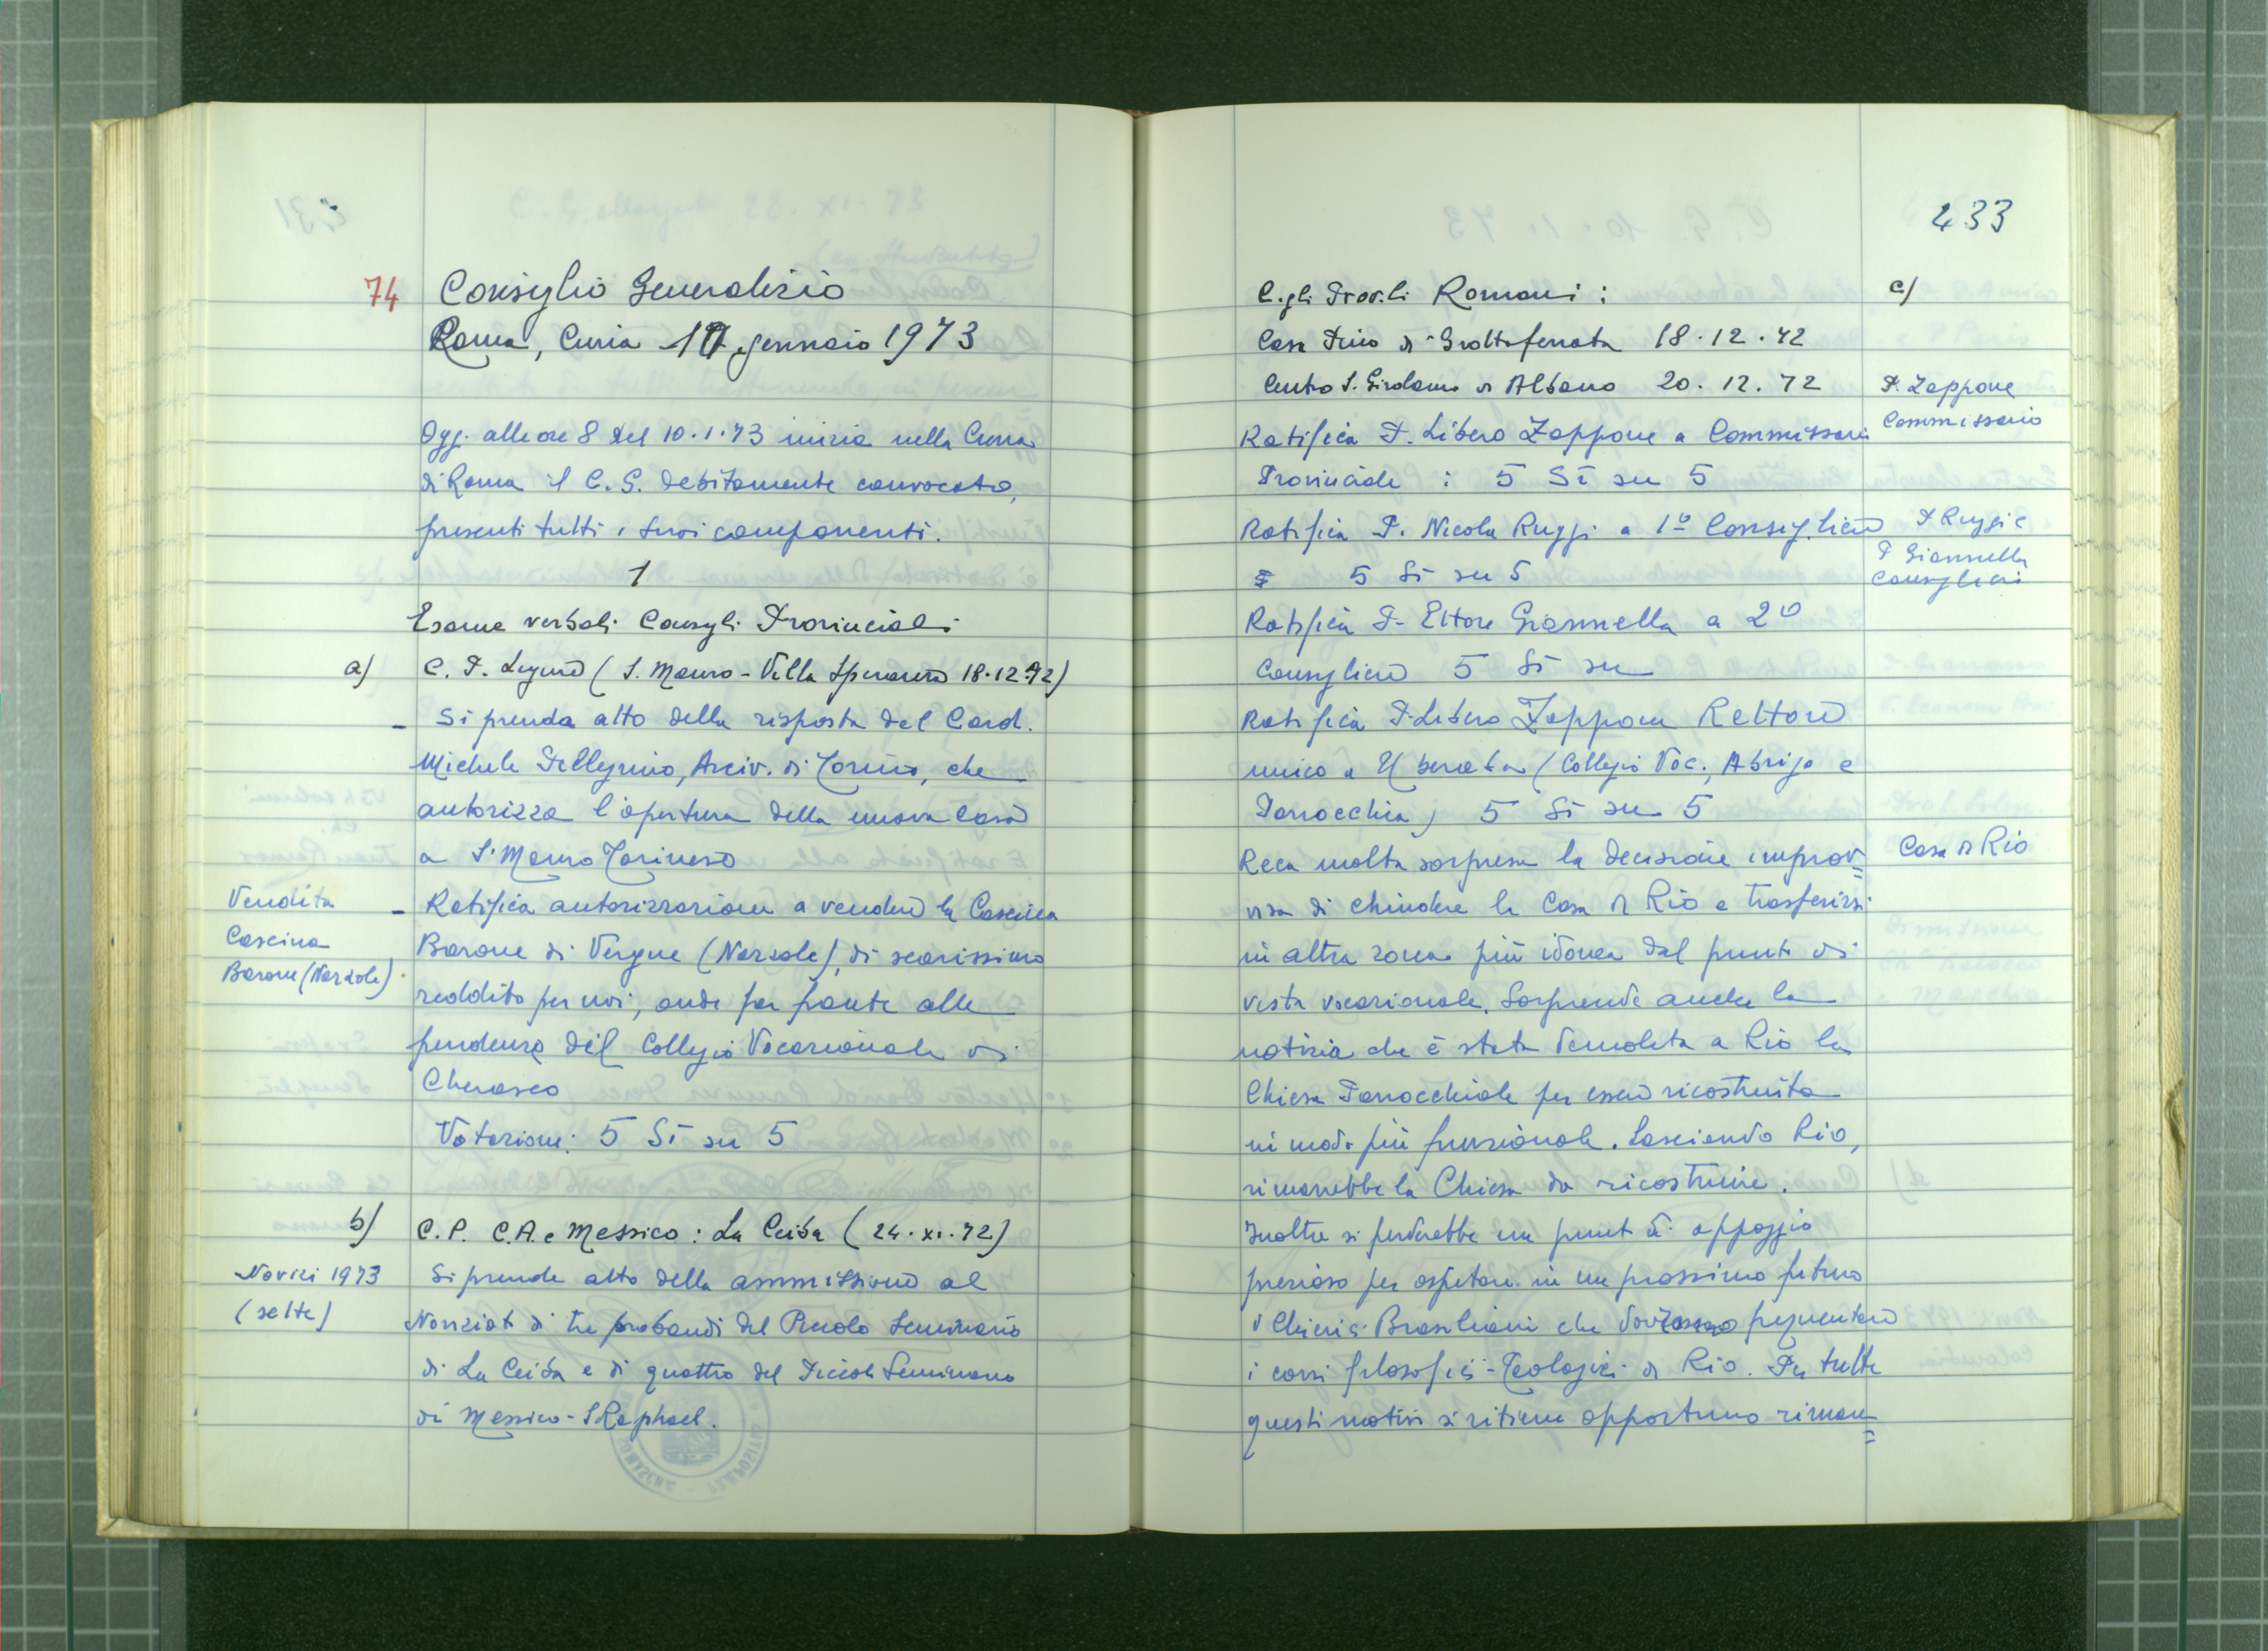 74
Consiglio Generalizio
Roma, Curia 10 gennaio 1973
Oggi alle ore 8 del 10.1.73 inizia nella Curia
di Roma il C. G. debitamente convocato,
presenti tutti i suoi componenti.
1
Esame verbali Consigli Provinciali
a)
C. P. Ligure (S. Mauro - Villa Speranza 18.12.72)
- Si prenda atto della risposta del Card.
Michele Pellegrino, Arciv. di Torino, che
autorizza l'apertura della nuova Casa
a S. Mauro Torinese
Vendita
Cascina
Barone (Narzole)
- Ratifica autorizzazione a vendere la Cascina
Barone di Vergne (Narzole), di scarissimo
reddito per noi, onde far fronte alle
pendenze del Collegio Vocazionale di
Cherasco
Votazione: 5 Sì su 5
b)
C. P. C.A. e Messico: La Ceiba (24.XI.72)
Novizi 1973
(sette)
Si prende atto della ammissione al
Noviziato di tre probandi del Piccolo Seminario
di La Ceiba e di quattro del Piccolo Seminario
di Messico - S. Raphael.
433
C.gli Prov.li Romani:
c)
Casa Pino di Grottaferrata 18.12.72
Centro S. Girolamo di Albano 20.12.72
P. Zappone
Commissario
Ratifica P. Libero Zappone a Commissario
Provinciale: 5 Sì su 5
Ratifica P. Nicola Ruggi a 1º Consigliere
P. Ruggi e
P. Giannella
Consiglieri
5 Sì su 5
Ratifica P. Ettore Giannella a 2º
Consigliere 5 Sì su
Ratifica P. Libero Zappone Rettore
unico a Uberaba (Collegio Voc., Abrigo e
Parrocchia) 5 Sì su 5
Casa di Rio
Reca molta sorpresa la decisione improv=
visa di chiudere la Casa di Rio e trasferirsi
in altra zona più idonea dal punto di
vista vocazionale. Sorprende anche la
notizia che è stata demolita a Rio la
Chiesa Parrocchiale per essere ricostruita
in modo più funzionale. Lasciando Rio,
rimarrebbe la Chiesa da ricostruire.
Inoltre si perderebbe un punto di appoggio
prezioso per ospitare in un prossimo futuro
i Chierici Brasiliani che dovranno frequentare
i corsi filosofici-Teologici di Rio. Per tutti
questi motivi si ritiene opportuno riman=